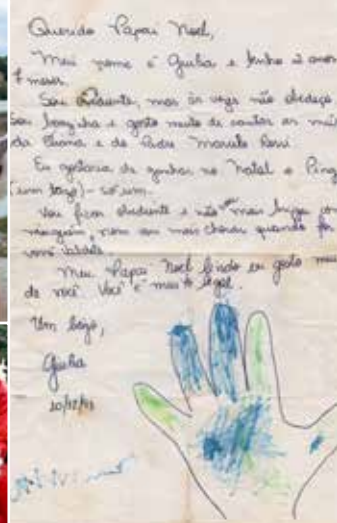 Querido Papai Noel,
Meu nome é Giulia e tenho 2 anos
7 meses.
Sou obediente, mas às vezes não obedeço
Sou boazinha e gosto muito de cantar as mús
da Eliana e do Padre Marcelo Rossi
Eu gostaria de ganhar no Natal o Ping
(um bozo) - só um.
Vou ficar obediente e não vou mais brigar com
ninguém, nem vou mais chorar quando for
Meu Papai Noel lindo eu gosto mui
de você. Você é muito legal.
Um beijo,
Giulia